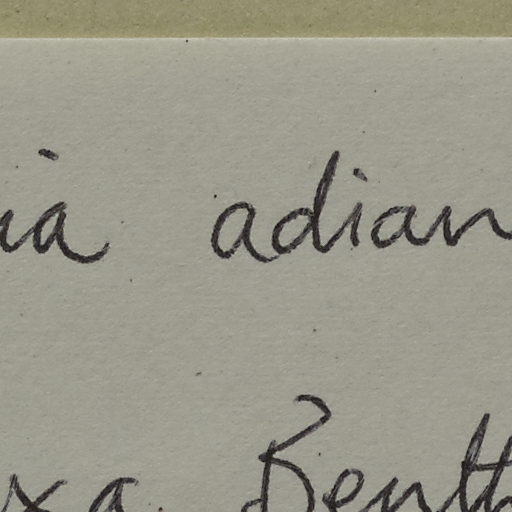 ia adian
xa Benth